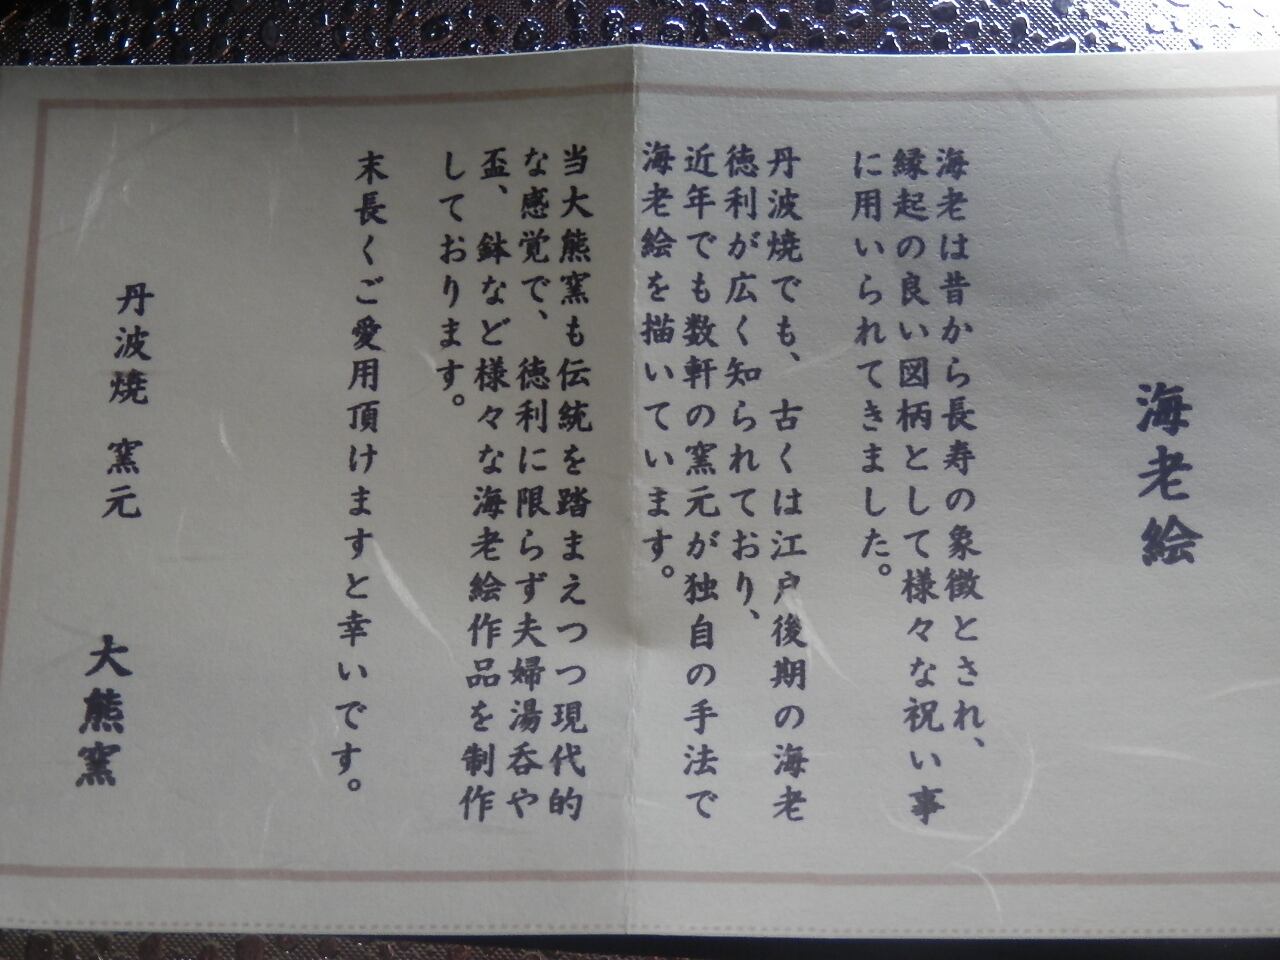 海老絵
海老は昔から長寿の象徴とされ、
縁起の良い図柄として様々な祝い事
に用いられてきました。
丹波焼でも、古くは江戸後期の海老
徳利が広く知られており、
近年でも数軒の窯元が独自の手法で
海老絵を描いています。
当大熊窯も伝統を踏まえつつ現代的
な感覚で、徳利に限らず夫婦湯呑や
盃、鉢など様々な海老絵作品を制作
しております。
末長くご愛用頂けますと幸いです。
丹波焼 窯元
大熊窯